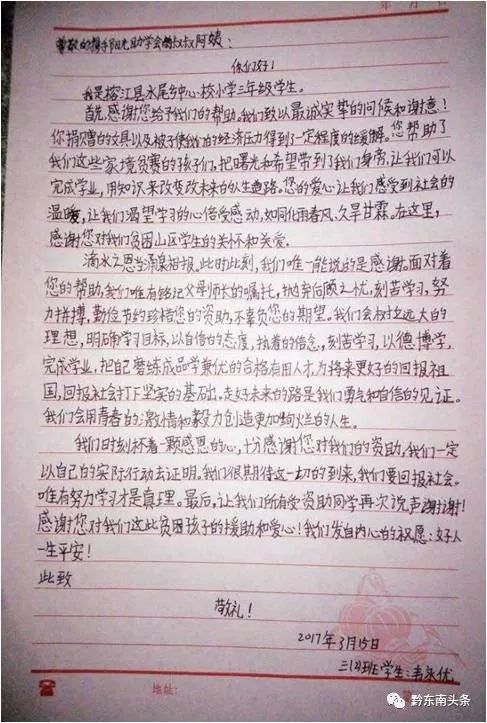 年 月 日
尊敬的携手阳光助学会的叔叔阿姨：
你们好！
我是榕江县水尾乡中心校小学三年级学生。
首先感谢您给予我们的帮助。我们致以最诚实挚的问候和谢意！
你捐赠的文具以及被子使我们的经济压力得到了一定程度的缓解。您帮助了
我们这些家境贫寒的孩子们，把曙光和希望带到了我们身旁，让我们可以
完成学业，用知识来改变改未来的人生道路，您的爱心让我们感受到社会的
温暖，让我们渴望学习的心倍受感动，如同化雨春风、久旱甘霖。在这里，
感谢您对我们贫困山区学生的关怀和关爱。
滴水之恩当涌泉相报，此时此刻，我们唯一能说的是感谢。面对着
您的帮助，我们唯有铭记父母师长的嘱托，抛弃后顾之忧，刻苦学习，努
力拼搏，勤俭节约珍惜您的资助，不辜负您的期望。我们会树立远大的
理想，明确学习目标，以自信的态度，执着的信念，刻苦学习，以德博学，
完成学业，把自己磨练成品学兼优的合格有用人才，为将来更好的回报祖
国，回报社会打下坚实的基础，走好未来的路是我们勇气和自信的见证。
我们会用青春的激情和毅力创造更加绚烂的人生。
我们时刻怀着一颗感恩的心，十分感谢您对我们的资助，我们一定
以自己的实际行动去证明。我们很期待这一切的到来，我们要回报社会。
唯有努力学习才是真理。最后，让我们所有受资助同学再次说声谢谢！
感谢您对我们这些贫困孩子的援助和爱心！我们发自内心的祝愿：好人
一生平安！
此致
敬礼！
2017年3月15日
三班学生：韦永优
地址：
黔东南头条